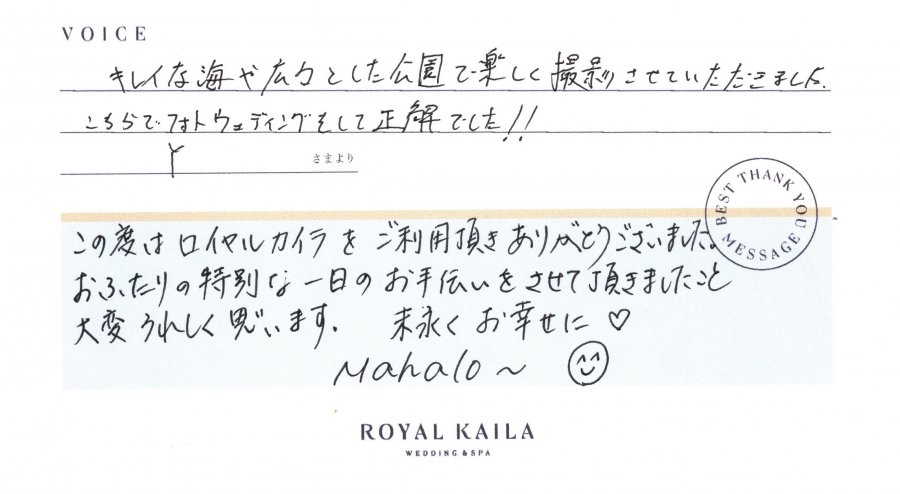 VOICE
キレイな海や広々とした公園で楽しく撮影させていただきました。
こちらでフォトウェディングをして正解でした!!
Y さまより
BEST THANK YOU MESSAGE
この度はロイヤルカイラをご利用頂きありがとうございました。
おふたりの特別な一日のお手伝いをさせて頂きましたこと
大変うれしく思います. 末永くお幸せに♡
Mahalo~
ROYAL KAILA
WEDDING & SPA